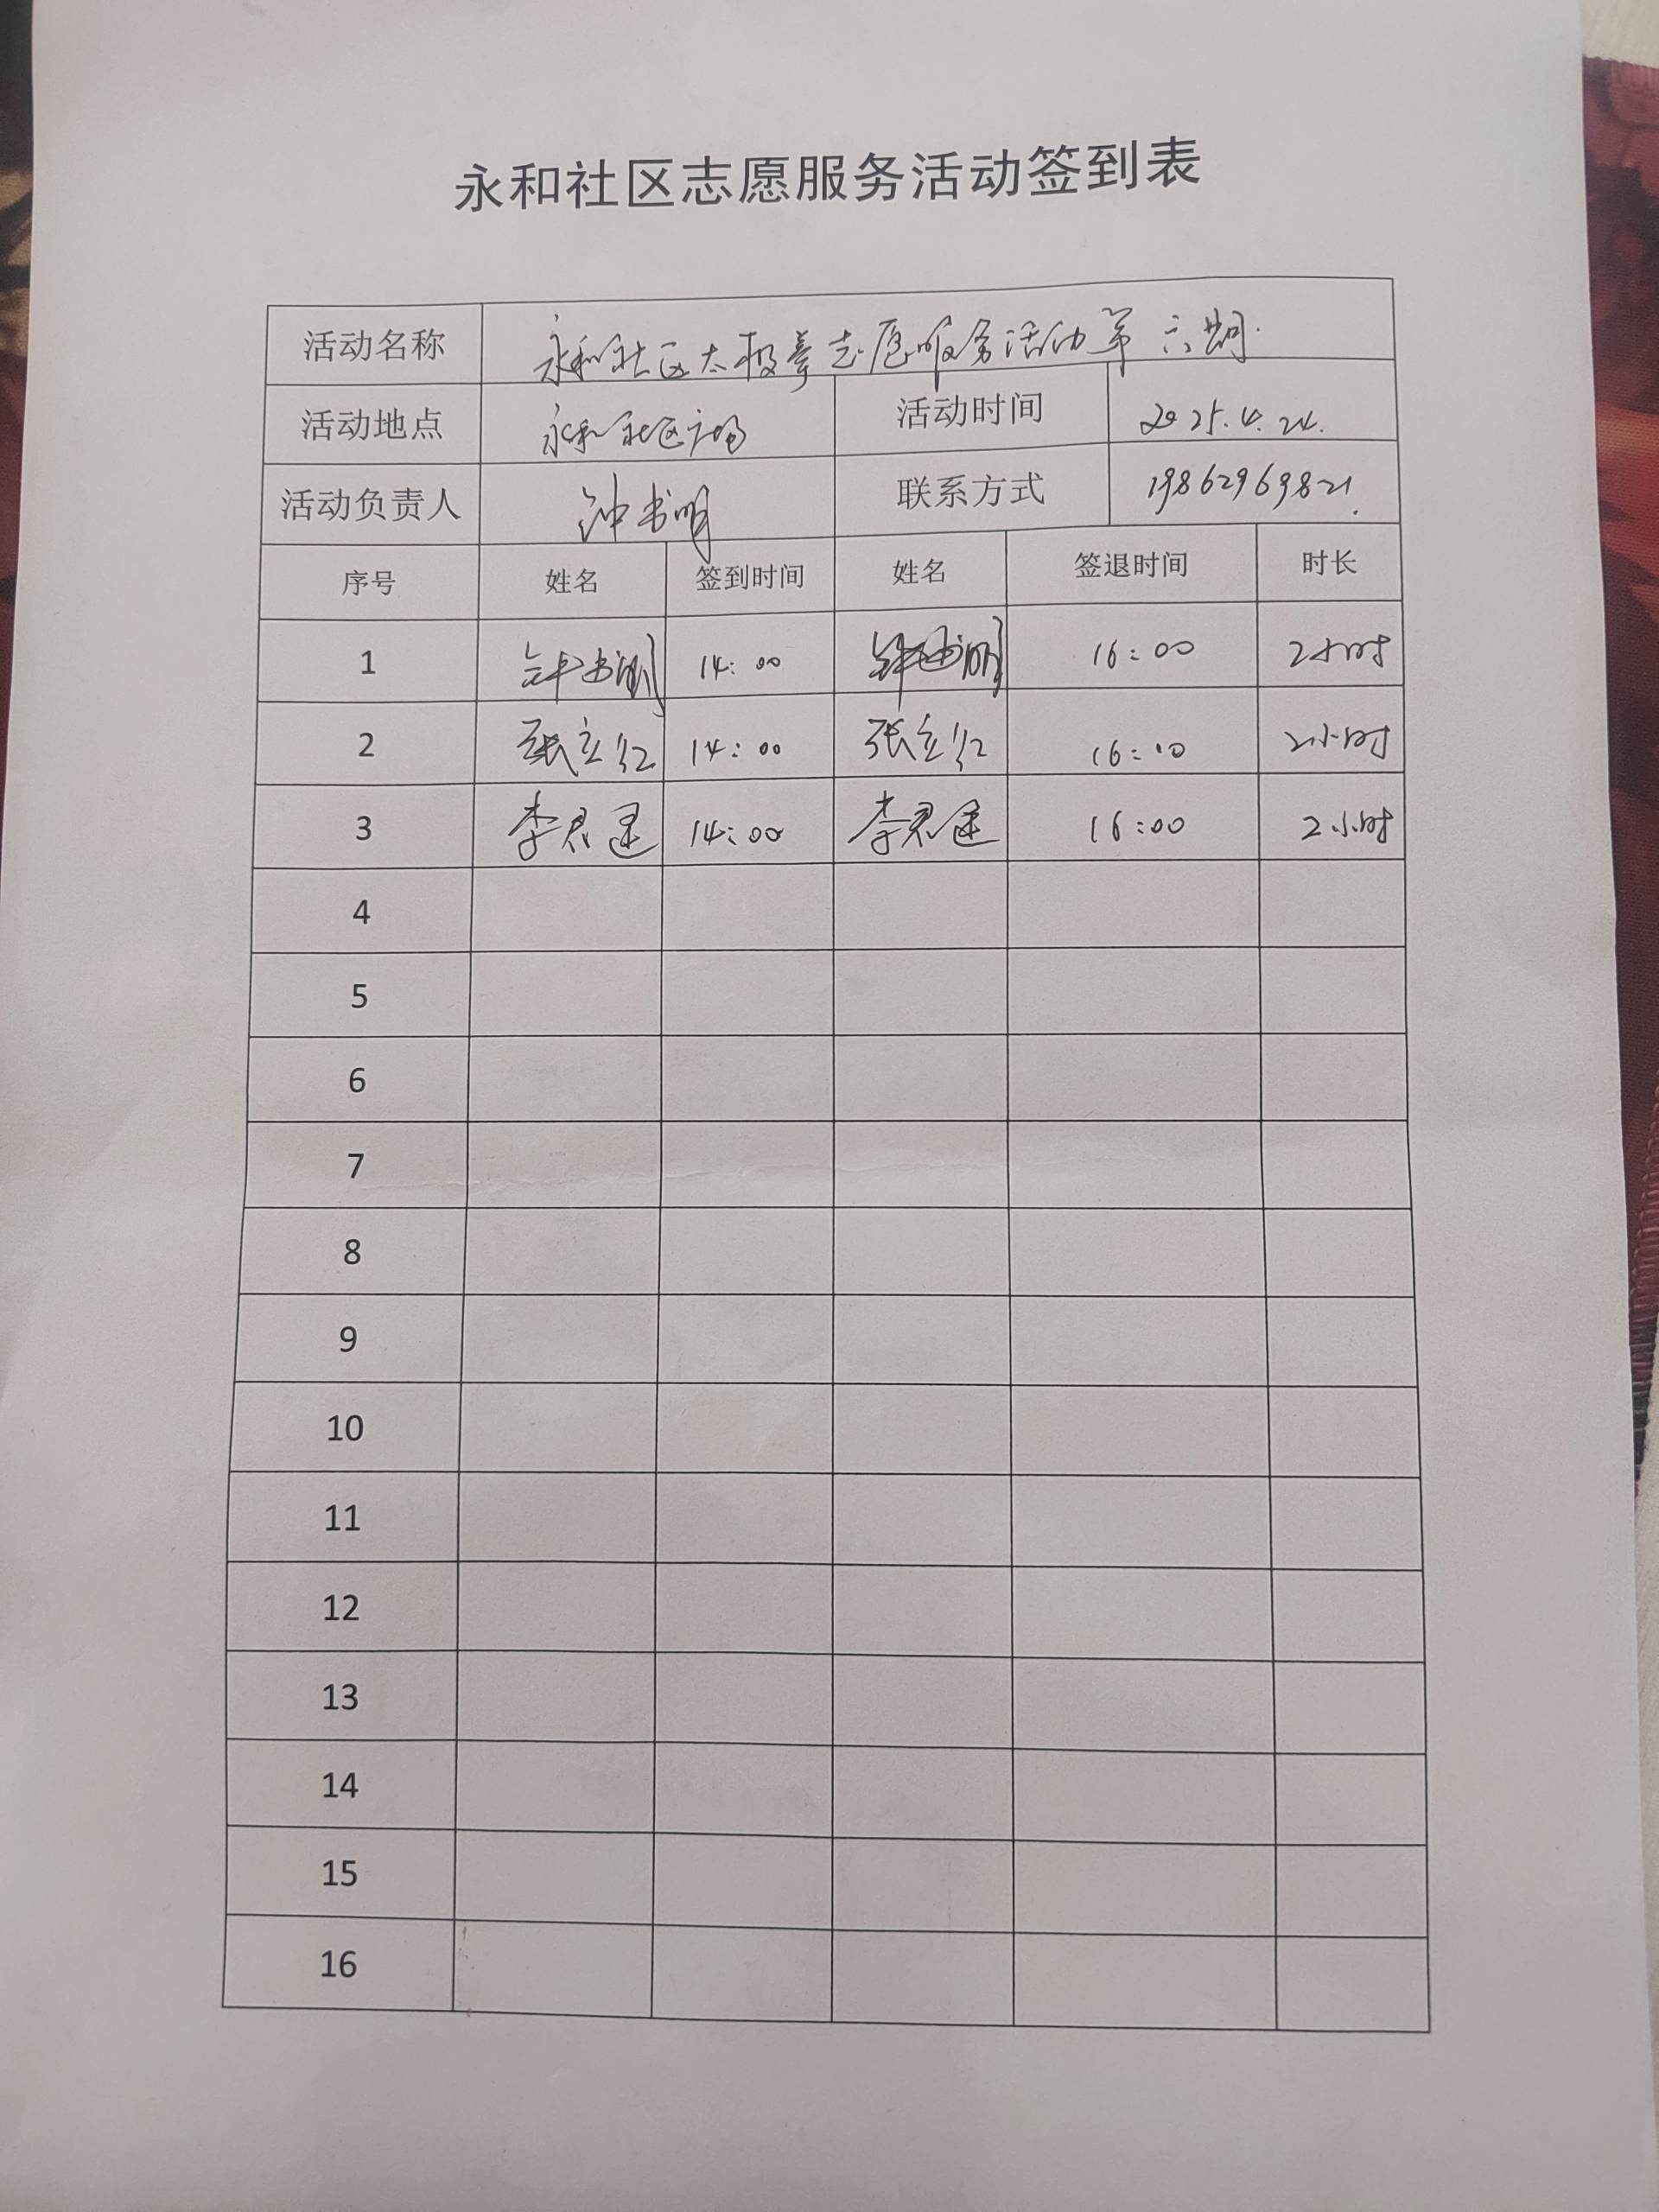 永和社区志愿服务活动签到表
活动名称 永和社区太极拳志愿服务活动第六期
活动地点 永和社区广场 活动时间 2025.4.24.
活动负责人 钟书明 联系方式 19862969821
序号 姓名 签到时间 姓名 签退时间 时长
1 钟书明 14:00 钟书明 16:00 2小时
2 张立红 14:00 张立红 16:10 2小时
3 李君 14:00 李君 16:00 2小时
4
5
6
7
8
9
10
11
12
13
14
15
16